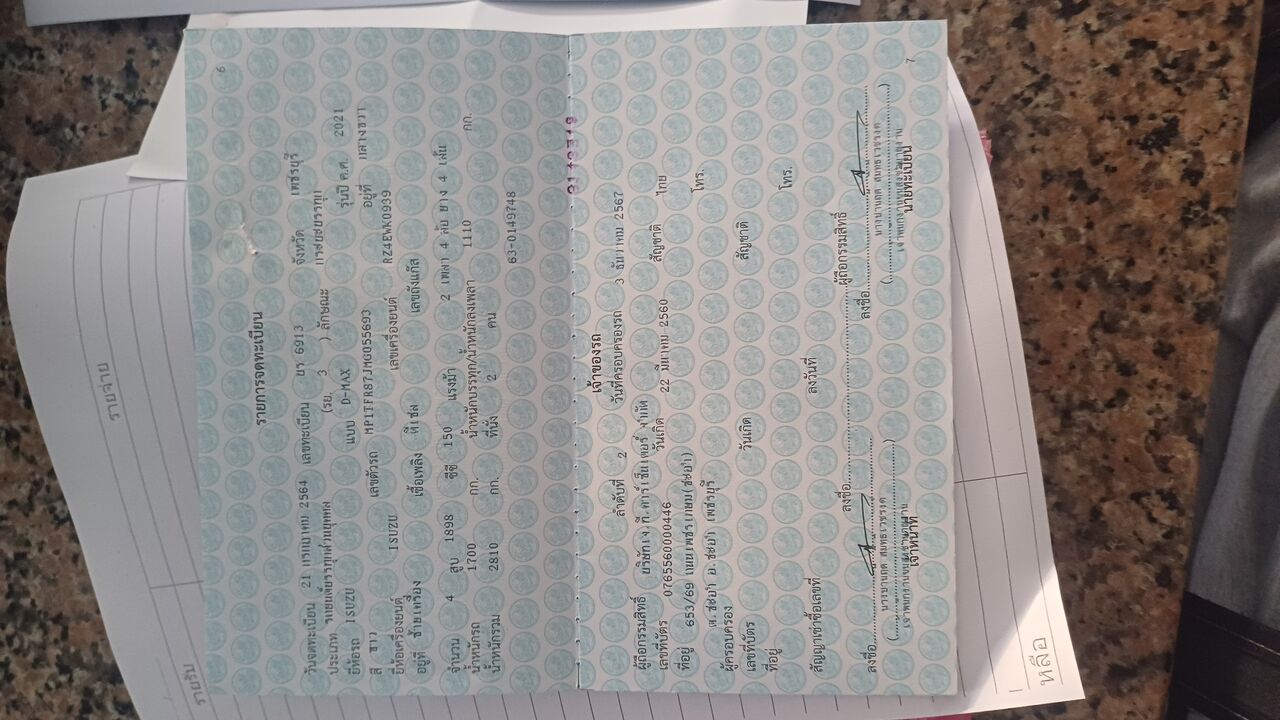 รายจ่าย
รายรับ
หลือ
6
รายการจดทะเบียน
วันจดทะเบียน 21 กรกฎาคม 2564 เลขทะเบียน ยร 6913 จังหวัด เพชรบุรี
ประเภท รถยนต์บรรทุกส่วนบุคคล (รย. 3 ) ลักษณะ กระบะบรรทุก
ยี่ห้อรถ ISUZU แบบ D-MAX รุ่นปี ค.ศ. 2021
สี ขาว เลขตัวรถ MP1TFR87JMG055693 อยู่ที่ กลางขวา
ยี่ห้อเครื่องยนต์ ISUZU เลขเครื่องยนต์ RZ4EWK0939
อยู่ที่ ซ้ายเครื่อง เชื้อเพลิง ดีเซล เลขถังแก๊ส
จำนวน 4 สูบ 1898 ซีซี 150 แรงม้า 2 เพลา 4 ล้อ ยาง 4 เส้น
น้ำหนักรถ 1700 กก. น้ำหนักบรรทุก/น้ำหนักลงเพลา 1110 กก.
น้ำหนักรวม 2810 กก. ที่นั่ง 2 คน
63-0149748
เจ้าของรถ
ลำดับที่ 2 วันที่ครอบครองรถ 3 ธันวาคม 2567
ผู้ถือกรรมสิทธิ์ บริษัท จำกัด
เลขที่บัตร 0765560000446 วันเกิด 22 มีนาคม 2560 สัญชาติ ไทย
ที่อยู่ 653/69 ถนนเพชรเกษม(ชะอำ)
ต.ชะอำ อ.ชะอำ เพชรบุรี โทร.
ผู้ครอบครอง
เลขที่บัตร วันเกิด สัญชาติ
ที่อยู่ โทร.
สัญญาเช่าซื้อเลขที่ ลงวันที่
ลงชื่อ ผู้ถือกรรมสิทธิ์
ลงชื่อ ลงชื่อ
เจ้าหน้าที่ นายทะเบียน
7